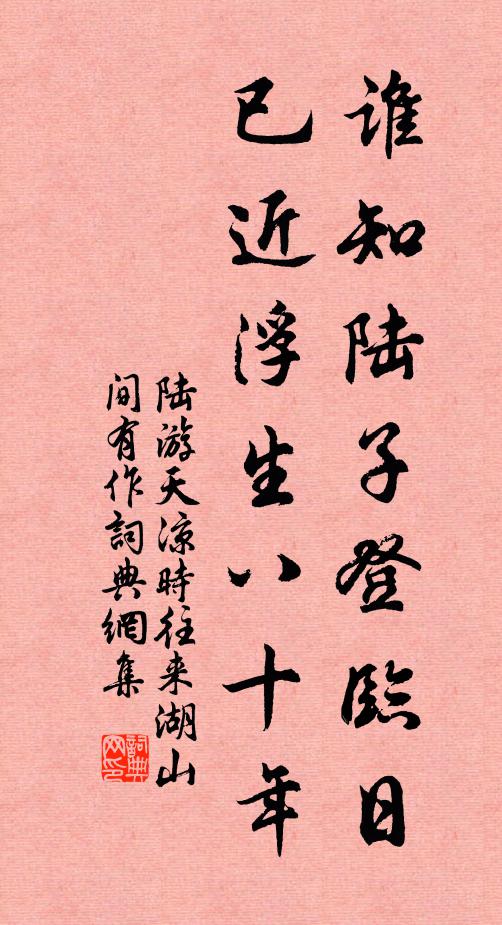 谁知陆子登臨日
已近浮生八十年
陆游天凉時往来湖山
间有作詞典網集
詞典网印